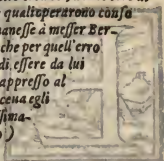 qualioperarono con so
manesse à messer Ber-
che per quell'erro
di, essere da lui
appresso al
cena egli
sima-